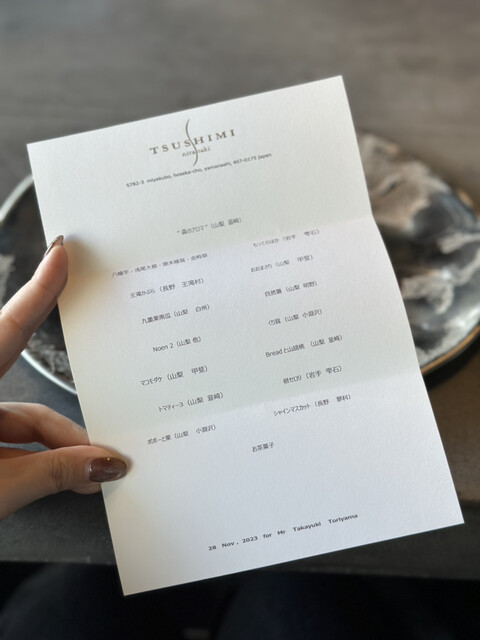 TSUSHIMI
nirasaki
5762-3 miyakubo, hosaka-cho, yamanashi, 407-0175 japan
"森のアロマ"(山梨 韮崎)
もってのほか (岩手 雫石)
八幡芋・浅尾大根・
王滝かぶら (長野 王滝村)
おおまさり (山梨 甲斐)
九重栗南瓜 (山梨 白州)
自然薯 (山梨 明野)
Noen 2 (山梨 他)
(山梨 小淵沢)
マコモダケ (山梨 甲斐)
Breadと山胡桃 (山梨 韮崎)
トマティーヨ (山梨 韮崎)
根セロリ (岩手 雫石)
ポポーと栗 (山梨 小淵沢)
シャインマスカット (長野 蓼科)
お茶菓子
28 Nov, 2023 for Mr Takayuki Toriyama